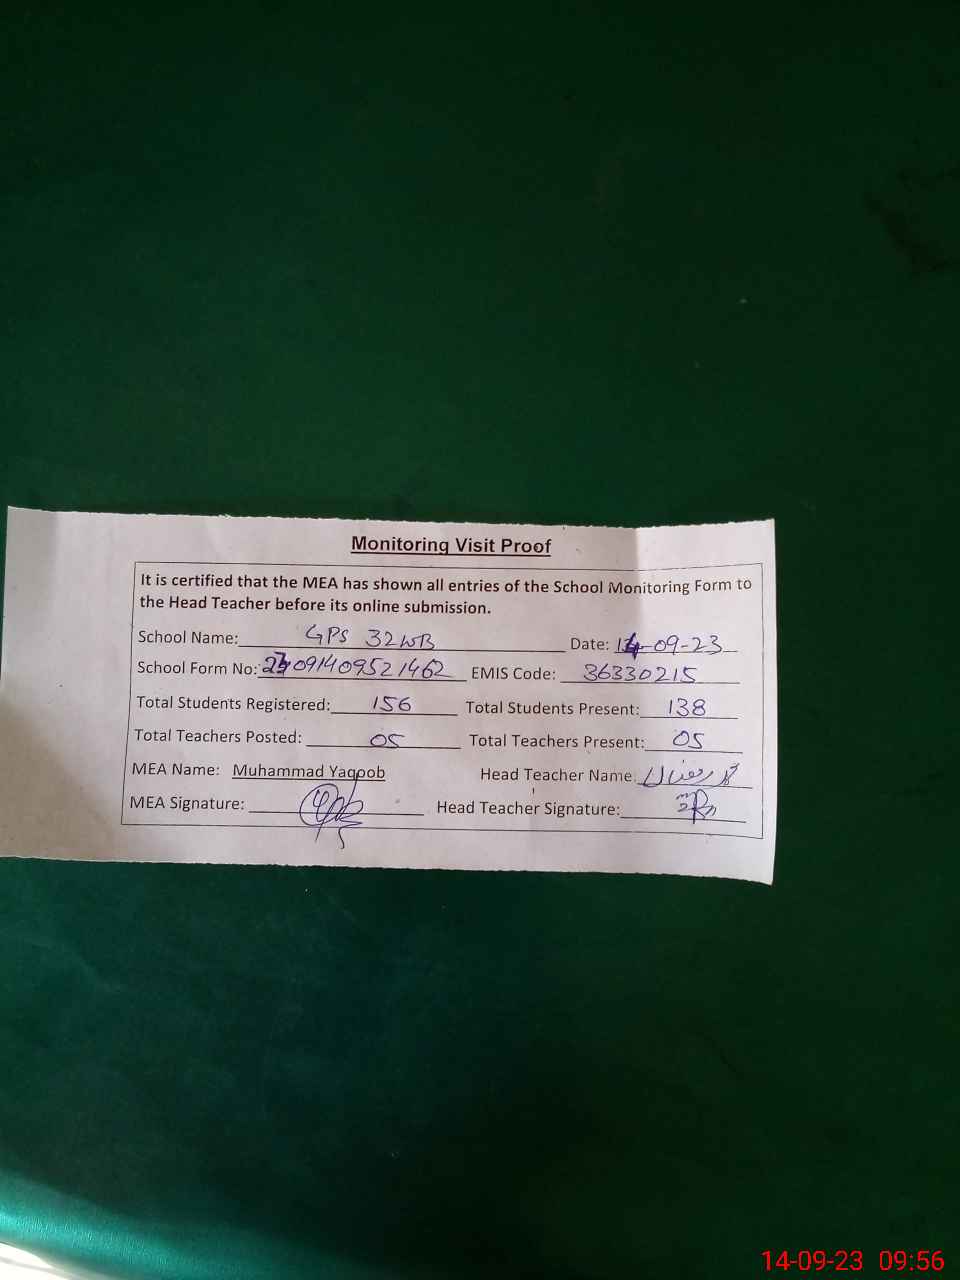 Monitoring Visit Proof
It is certified that the MEA has shown all entries of the School Monitoring Form to
the Head Teacher before its online submission.
School Name: GPS 32WB Date: 14-09-23
School Form No: 09140952 1462 EMIS Code: 36330215
Total Students Registered: 156 Total Students Present: 138
Total Teachers Posted: 05 Total Teachers Present: 05
MEA Name: Muhammad Yaqoob Head Teacher Name:
MEA Signature: Head Teacher Signature:
14-09-23 09:56